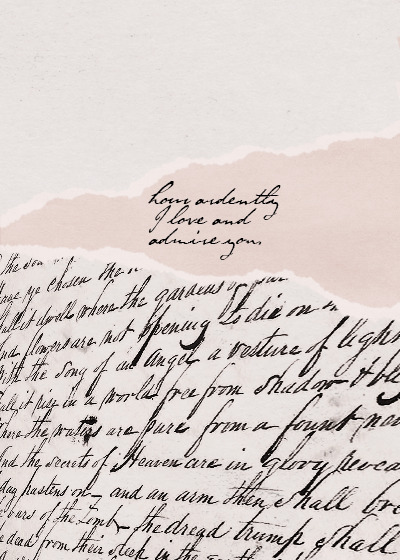 how ardently
I love and
admire you
the son
have ye chosen the
shall it dwell where the gardens
and flowers are not opening to die on
With the song of an angel a vesture of light
shall it rise in a world free from shadow &
Where the waters are pure from a fount
And the secrets of Heaven are in glory
day hastens on— and an arm then shall
of the Tomb— the dread trump shall
dead from their sleep in the